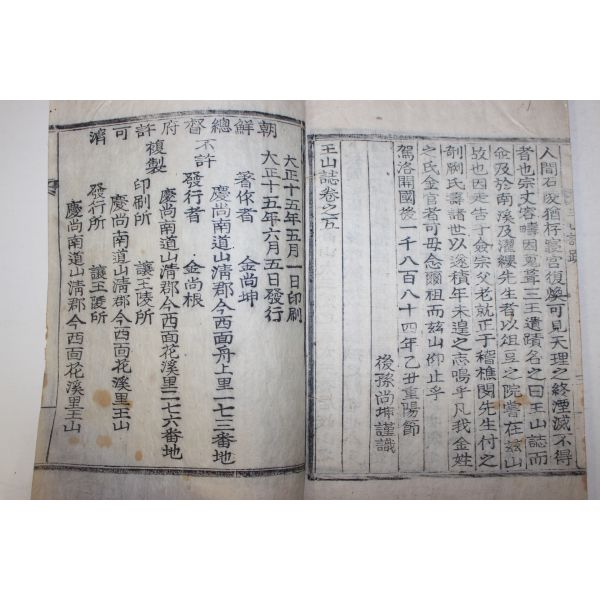 人間石皮猶存寢宮復煥可見天理之終湮滅不得
者也宗丈容疇因蒐葺三王遺蹟名之曰王山誌而
佥及於南溪及濯纓先生者以俎豆之院嘗在玆山
故也因走告于僉宗父老就正于稽樵閔先生付之
剞劂氏壽諸世以遂積年未遑之志嗚乎凡我金姓
之氏金官者可毋念爾祖而玆山仰止乎
駕洛開國後一千八百八十四年乙丑重陽節
後孫尚坤謹識
王山誌卷之五
朝鮮總督府許可濟
大正十五年五月一日印刷
大正十五年六月五日發行
著作者 金尚坤
慶尚南道山清郡今西面舟上里一七三番地
發行者 金尚根
慶尚南道山清郡今西面花溪里三七六番地
不許複製
印刷所 讓王陵所
慶尚南道山清郡今西面花溪里王山
發行所 讓王陵所
慶尚南道山清郡今西面花溪里王山